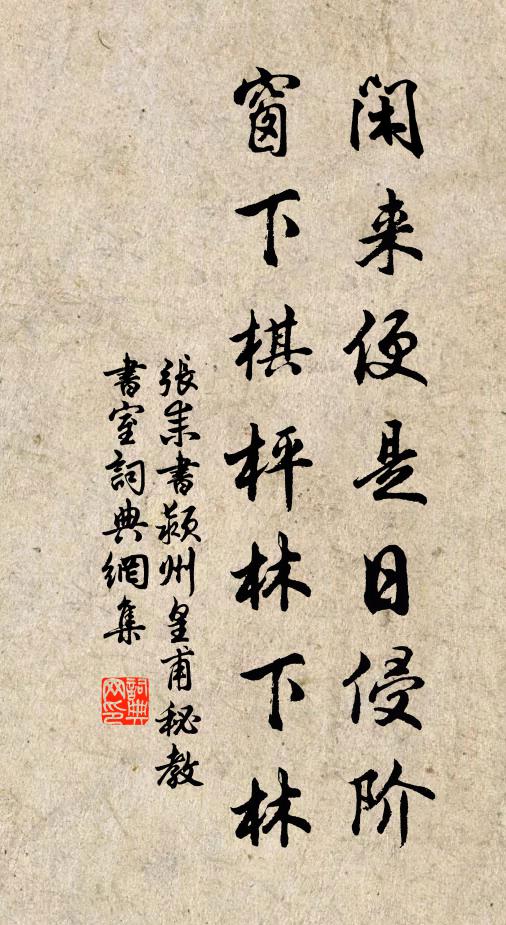 闲来便是日侵阶
窗下棋枰林下林
張耒書潁州皇甫秘教
書室詞典網集
詞典网印